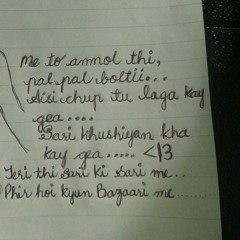 Me to anmol thi,
pal pal boltii...
Aisi chup tu laga kay
gea....
Sari khushiyan kha
kay gea..... <13
Teri thi sari ki sari me..
Phir hoi kyun Bazaari me......